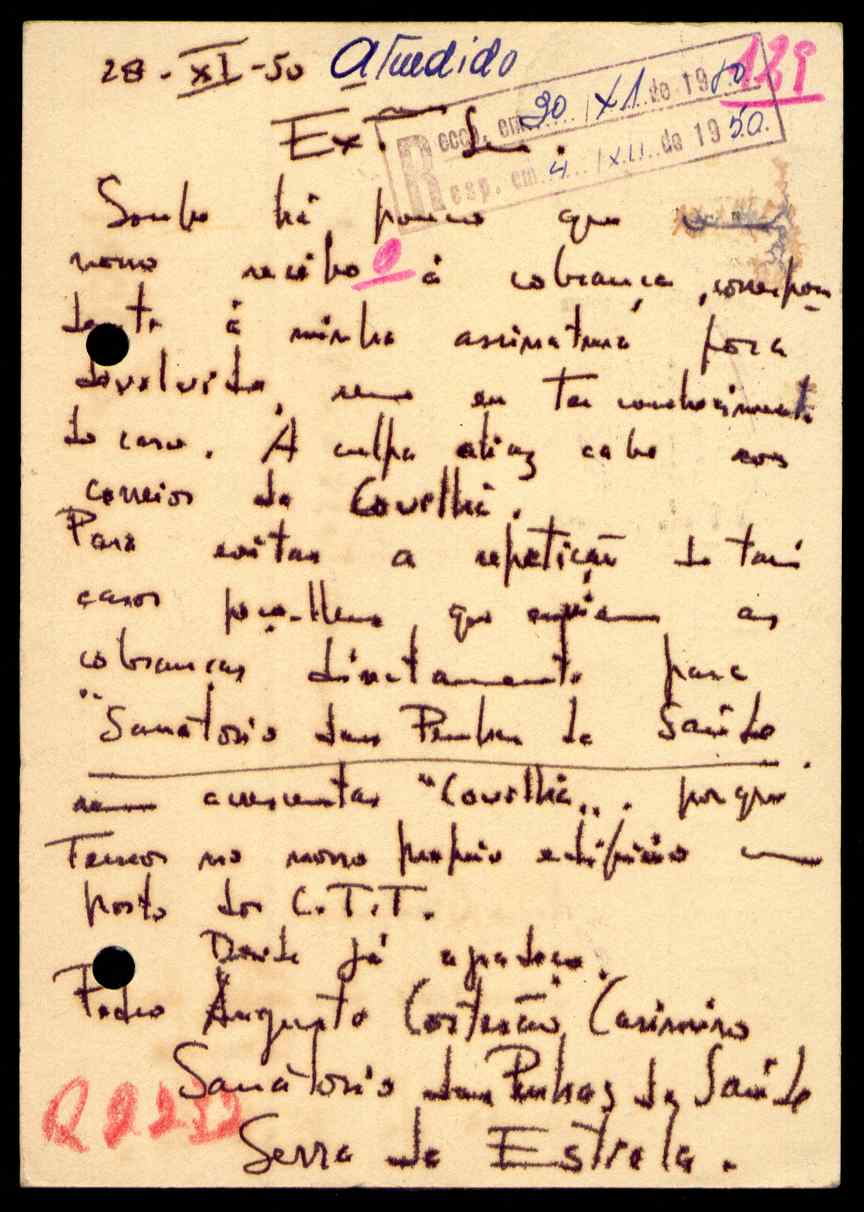 28-XI-50 Atendido 189
Recep. em 30/XI de 1950
Resp. em 4/XII de 1950.
Ex.mo Sr.
Soube há pouco que
vosso recibo à cobrança, correspon-
dente à minha assinatura fora
devolvido, sem eu ter conhecimento
do caso. A culpa aliaz cabe aos
correios da Covilhã.
Para evitar a repetição de tais
casos peço-lhes que enviem as
cobranças directamente para
"Sanatorio das Penhas da Saúde
sem acrescentar "Covilhã". porque
Temos no nosso proprio edificio um
posto dos C.T.T.
Desde já agradeço.
Pedro Augusto Cortesão Casimiro
Sanatorio das Penhas da Saúde
Serra da Estrela.